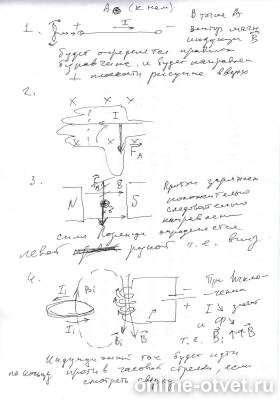 A (к нам)
В точке A
1. + I
вектор магн
индукции B
будет определятся правилом
буравчика, и будет направлен
⊥ плоскости рисунка вверх
2.
x x x
I
x x
F_A
3.
B
N S
Протон заряжен
положительно
следовательно
направление
силы Лоренца определяется
левой рукой т.е. вниз
4.
I_i B_i B
I_i B_i B
При
+ I ↓ значит
и Ф ↓
т.е. B_i ↑↑ B
Индукционный ток будет идти
по кольцу против часовой стрелки, если
смотреть сверху
online-otvet.ru